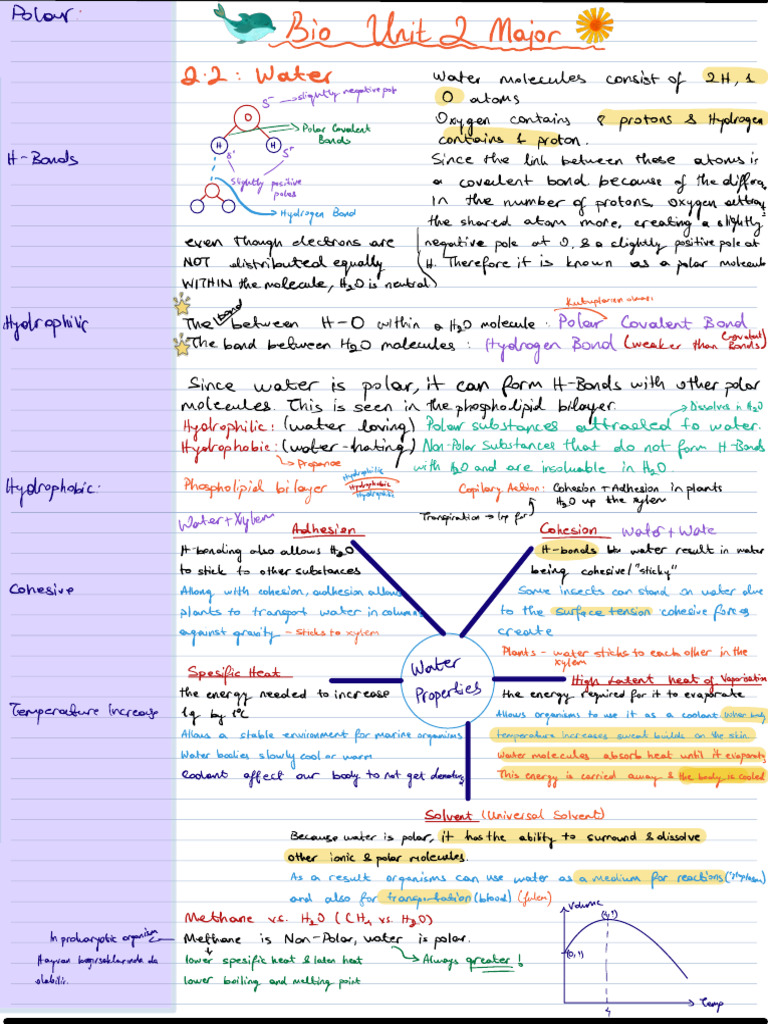 Polar:
Bio Unit 2 Major
2.2: Water
δ⁻ → slightly negative pole
O
Polar Covalent
Bonds
H
H
δ⁺
δ⁺
Slightly positive
poles
Hydrogen Bond
Water molecules consist of 2H, 1
O atoms
Oxygen contains 8 protons & Hydrogen
contains 1 proton.
Since the link between these atoms is
a covalent bond, because of the differ
in the number of protons, oxygen attracts
the shared atom more, creating a slightly
negative pole at O, & a slightly positive pole at
H. Therefore it is known as a polar molecule
H-Bonds
even though electrons are
NOT distributed equally
WITHIN the molecule, H2O is neutral
Hydrophilic
Kutuplarin olmasi
The bond between H-O within a H2O molecule: Polar Covalent Bond
The bond between H2O molecules: Hydrogen Bond (weaker than Covalent Bonds)
Since water is polar, it can form H-Bonds with other polar
molecules. This is seen in the phospholipid bilayer.
Dissolves in H2O
Hydrophilic: (water loving) Polar substances attracted to water.
Hydrophobic: (water-hating) Non-Polar substances that do not form H-Bonds
with H2O and are insoluable in H2O.
→ Propanoe
Hydrophobic:
Phospholipid bilayer
Hydrophilic
Hydrophobic
Hydrophilic
Capilary Action: Cohesion + Adhesion in plants
H2O up the xylem
Transpiration →
Water + Xylem
Adhesion
H-bonding also allows H2O
to stick to other substances
Along with cohesion, adhesion allows
plants to transport water in columns
against gravity - sticks to xylem
Cohesion
Water + Wate
H-bonds b/w water result in water
being cohesive/"sticky"
Some insects can stand on water due
to the surface tension cohesive forces
create
Plants - water sticks to each other in the
xylem
Cohesive
Water
Properties
Spesific Heat
the energy needed to increase
1g by 1°C
Allows a stable environment for marine organisms
Water bodies slowly cool or warm
Coolant affect our body to not get
High Latent heat of Vaporisation
the energy required for it to evaporate
Allows organisms to use it as a coolant. When body
temperature increases sweat builds on the skin.
Water molecules absorb heat until it evaporates
This energy is carried away & the body is cooled
Temperature Increase
Solvent (Universal Solvent)
Because water is polar, it has the ability to surround & dissolve
other ionic & polar molecules.
As a result organisms can use water as a medium for reactions (cytoplasm)
and also for transportation (blood)
Methane vs. H2O (CH4 vs. H2O)
Methane is Non-Polar, water is polar.
lower spesific heat & laten heat
→ Always greater!
lower boiling and melting point
In prokaryotic organism
Hayvan bağırsaklarında da
olabilir.
Volume
(4,1)
(0,1)
4
Temp